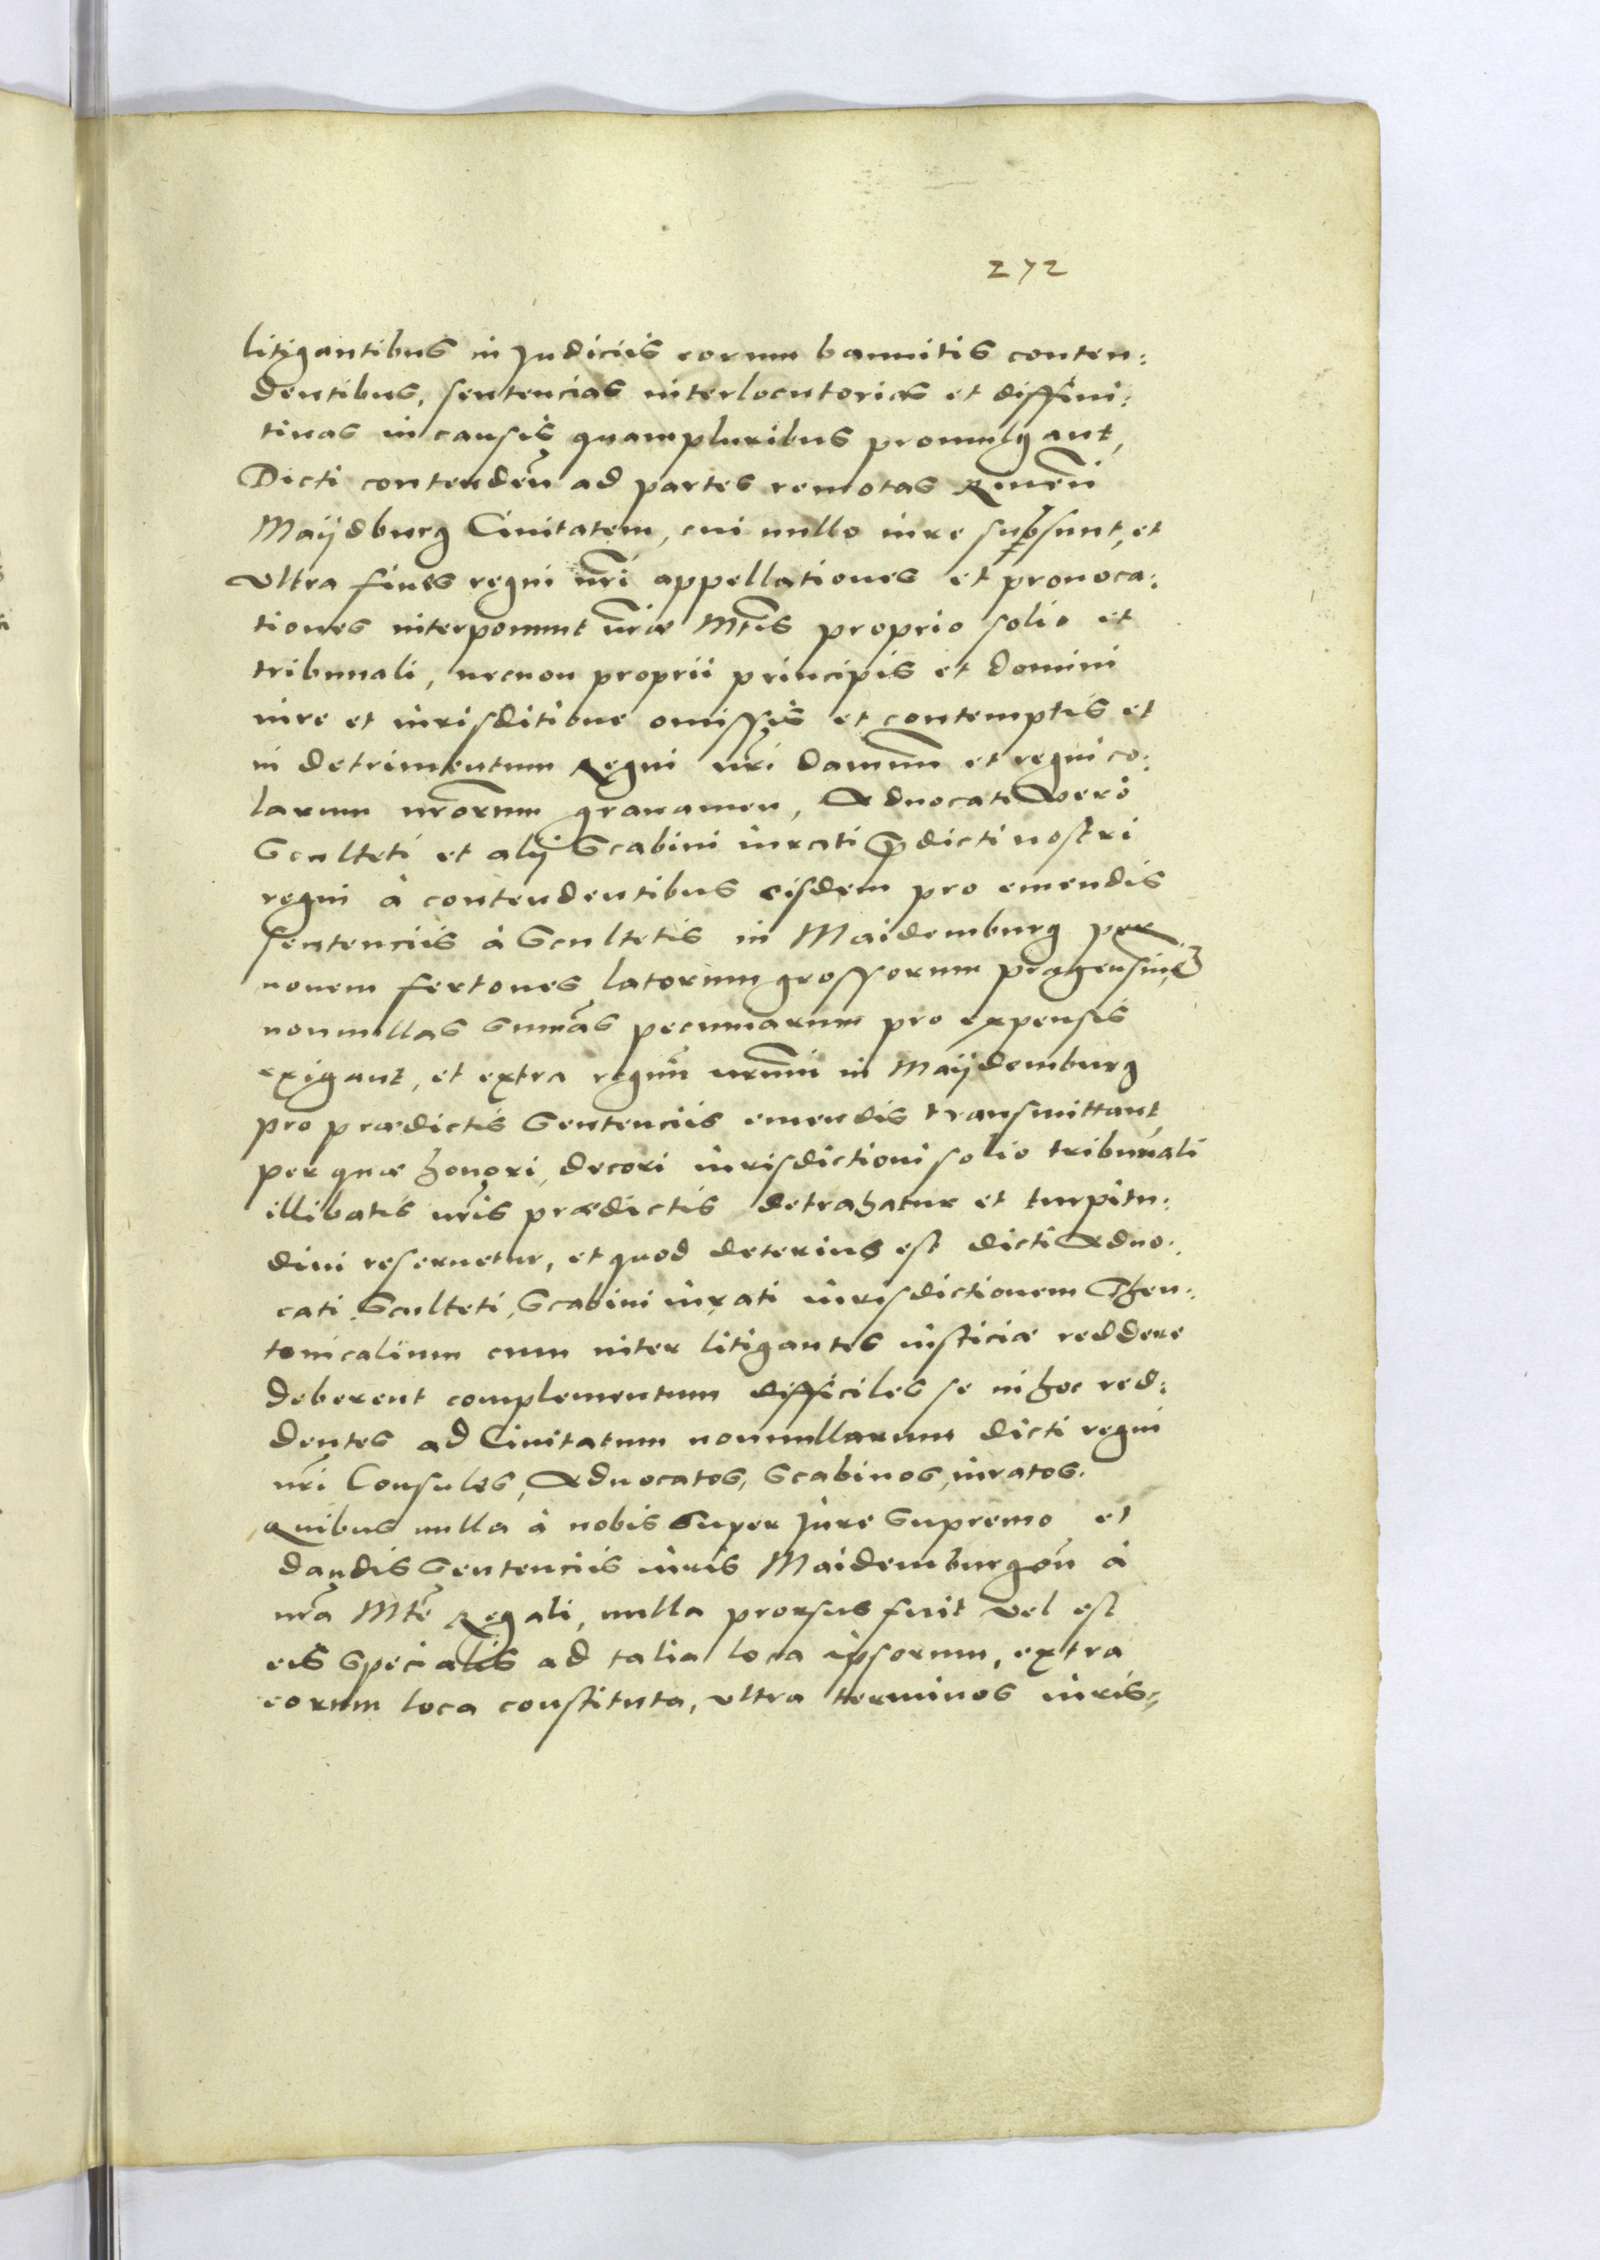 272
litigantibus in Judiciis eorum bannitis conten:
dentibus, sentencias interlocutorias et diffini:
tiuas in causis quampluribus promulgant,
Dicti contendẽn ad partes remotas
Maÿdburg Ciuitatem, cui nullo iure subsunt, et
vltra fines regni nr̃i appellationes et prouoca:
tiones interponunt nr̃æ Mtis proprio solio et
tribunali, necnon proprii principis et domini
iure et iurisditione omissis et contemptis et
in detrimentum Regni nr̃i damnũ et regnico:
larum nr̃orum grauamen, Aduocati Vero
Sculteti et alij Scabini iurati p̃dicti nostri
regni à contendentibus eisdem pro emendis
sentenciis à Scultetis in Maidemburg per
nouem fertones latorum grossorum pragensiu̅, &
nonnullas sum̃as pecuniarum pro expensis
exigant, et extra regnũ nrũm in Maÿdemburg
pro prædictis Sentenciis emendis transmittant,
per quæ honori, decori iurisdictioni solio tribunali
illibatis nr̃is prædictis detrahatur et turpitu:
dini reseruetur, et quod deterius est dicti Aduo:
cati, Sculteti, Scabini iurati iurisdictionem Theu:
tonicalium cum inter litigantes iusticiæ reddere
deberent complementum difficiles se in hoc red:
dentes ad Ciuitatum nonnullarum dicti regni
nr̃i Consules, Aduocatos, Scabinos, iuratos.
Quibus nulla à nobis Super Jure Supremo et
dandis Sentenciis iuris Maidemburgẽn à
nr̃a Mtẽ Regali, nulla prorsus fuit vel est
eis Specialis ad talia loca ipsorum, extra
eorum loca constituta, vltra terminos iuris: